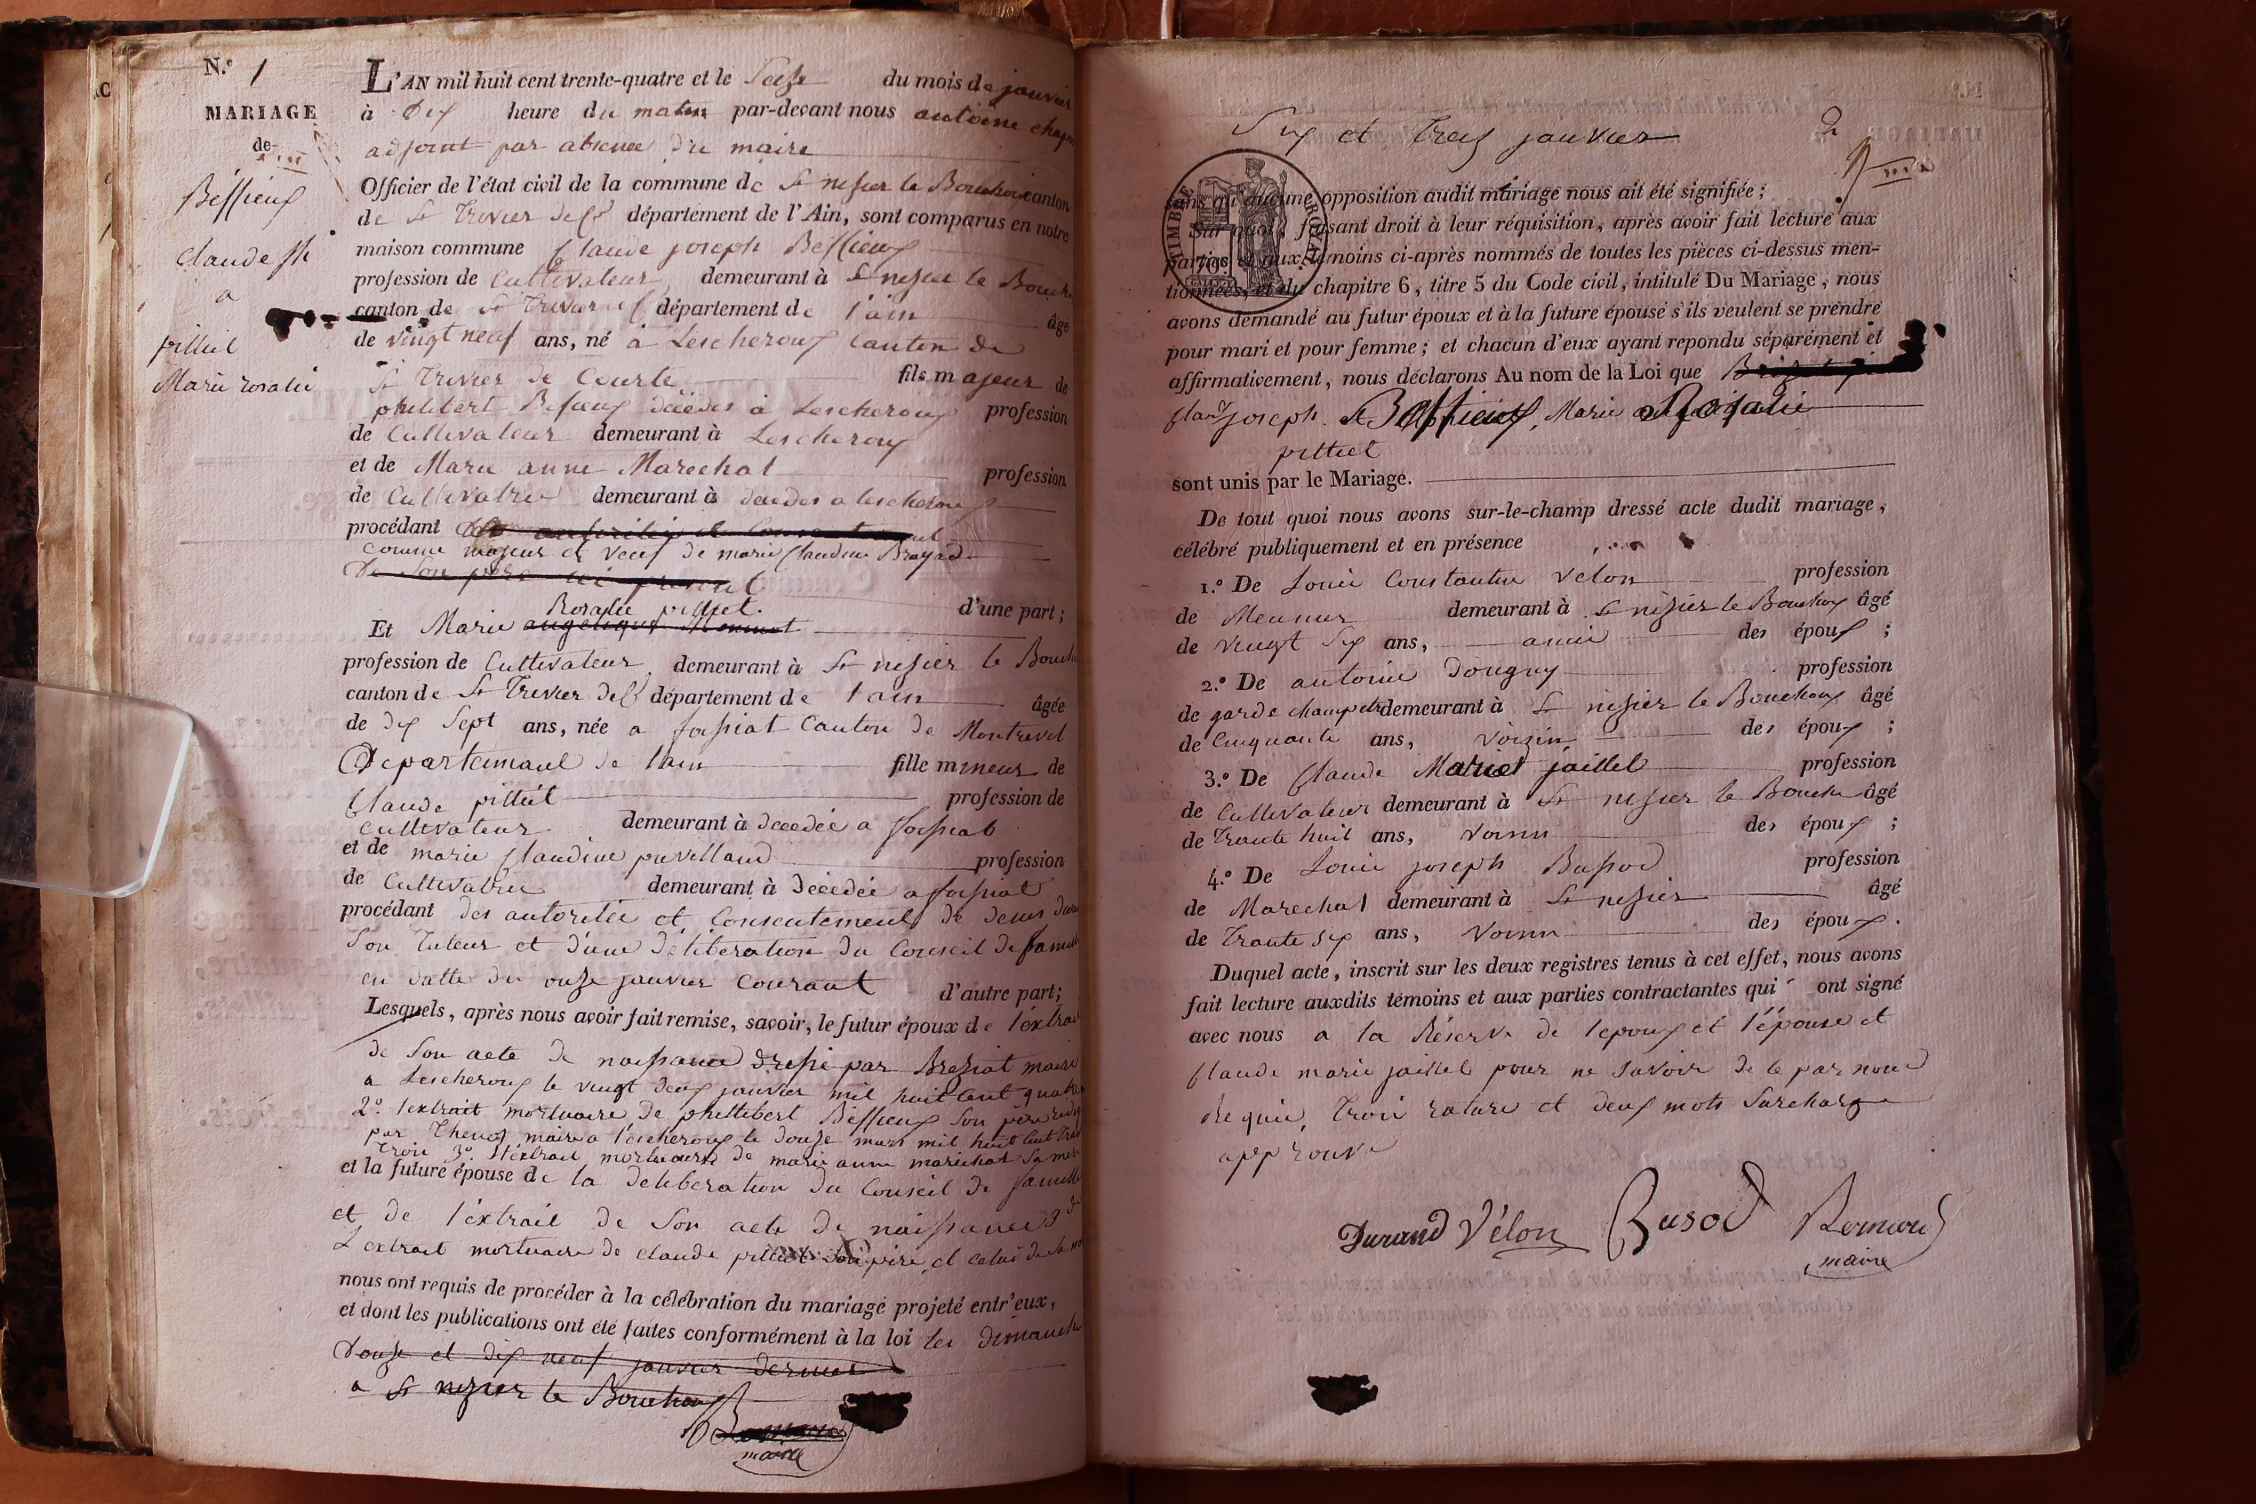 N.° 1
MARIAGE
de
Béssieux
Claude jh
a
pilliet
Marie rosalie
L'AN mil huit cent trente-quatre et le Seize du mois de janvier
à dix heure du matin par-devant nous antoine
adjoint par absence du maire
Officier de l'état civil de la commune de St nesier le Bouchoux canton
de St Trevier de Ct département de l'Ain, sont comparus en notre
maison commune Claude joseph Béssieux
profession de Cultivateur demeurant à St nesier le Bouch
canton de St Trevier de Ct département de l'ain âgé
de vingt neuf ans, né à Lescheroux canton de
St Trevier de Courte fils majeur de
philibert Besieux décédes à Lescheroux profession
de Cultivateur demeurant à Lescheroux
et de Marie anne Marechal profession
de Cultivatrice demeurant à décédes a lescheroux
procédant
comme majeur et veuf de marie Claudine Brayad
de Son père ici présent
d'une part;
Rosalie pilliet.
Et Marie angelique Monnet
profession de Cultivateur demeurant à St nesier le Bouch
canton de St Trevier de Ct département de l'ain âgée
de dix Sept ans, née a foissiat Canton de Montrevel
Departemant de l'ain fille mineur de
Claude pilliet profession de
cultivateur demeurant à décédée a foissiat
et de marie Claudine puvilland profession
de Cultivatrice demeurant à décédée a foissiat
procédant des autoritée et Consentement de denis
Son Tuteur et d'une délibération du Conseil de famille
en datte du onze janvier Courant d'autre part;
Lesquels, après nous avoir fait remise, savoir, le futur époux de l'extrait
de Son acte de naissance dressé par Breziat maire
a Lescheroux le vingt deux janvier mil huit cent quatre
2.° l'extrait mortuaire de philibert Béssieux Son père
par Thenoz maire a l'escheroux le douze mars mil huit cent
trois 3.° l'extrait mortuaire de marie anne maréchal Sa mere
et la future épouse de la délibération du Conseil de famille
et de l'extrait de Son acte de naissance 3°
L'extrait mortuaire de claude pilliet Son père, et celui de Sa
nous ont requis de procéder à la célébration du mariage projeté entr'eux,
et dont les publications ont été faites conformément à la loi les dimanche
douze et dix neuf janvier dernier
a St nesier le Bouchoux
maire
2
Six et Treiz janvier
TIMBRE ROYAL
70
sans qu'aucune opposition audit mariage nous ait été signifiée;
Sur quoi, faisant droit à leur réquisition, après avoir fait lecture aux
parties et aux témoins ci-après nommés de toutes les pièces ci-dessus men-
tionnées, et du chapitre 6, titre 5 du Code civil, intitulé Du Mariage, nous
avons demandé au futur époux et à la future épouse s'ils veulent se prendre
pour mari et pour femme; et chacun d'eux ayant repondu séparément et
affirmativement, nous déclarons Au nom de la Loi que
Claude joseph Béssieux, Marie Rosalie
pilliet
sont unis par le Mariage.
De tout quoi nous avons sur-le-champ dressé acte dudit mariage,
célébré publiquement et en présence
1.° De Louis Constantin Velon profession
de Meunier demeurant à St nèsier le Bouchoux âgé
de vingt Six ans, amie des époux;
2.° De antoine Dougny profession
de garde champetre demeurant à St nesier le Bouchoux âgé
de Cinquante ans, voizin des époux;
3.° De Claude Marie jaillet profession
de Cultivateur demeurant à St nesier le Bouchu âgé
de Trante huit ans, voisin des époux;
4.° De Louis joseph Busod profession
de Marechal demeurant à St nesier âgé
de Trante six ans, voisin des époux.
Duquel acte, inscrit sur les deux registres tenus à cet effet, nous avons
fait lecture auxdits témoins et aux parties contractantes qui ont signé
avec nous a la Réserve de l'epoux et l'épouse et
Claude marie jaillet pour ne savoir de le par nous
Requis, Trois rature et deux mots Surcharge
approuvé
Durand Vélon Busod Romand
maire